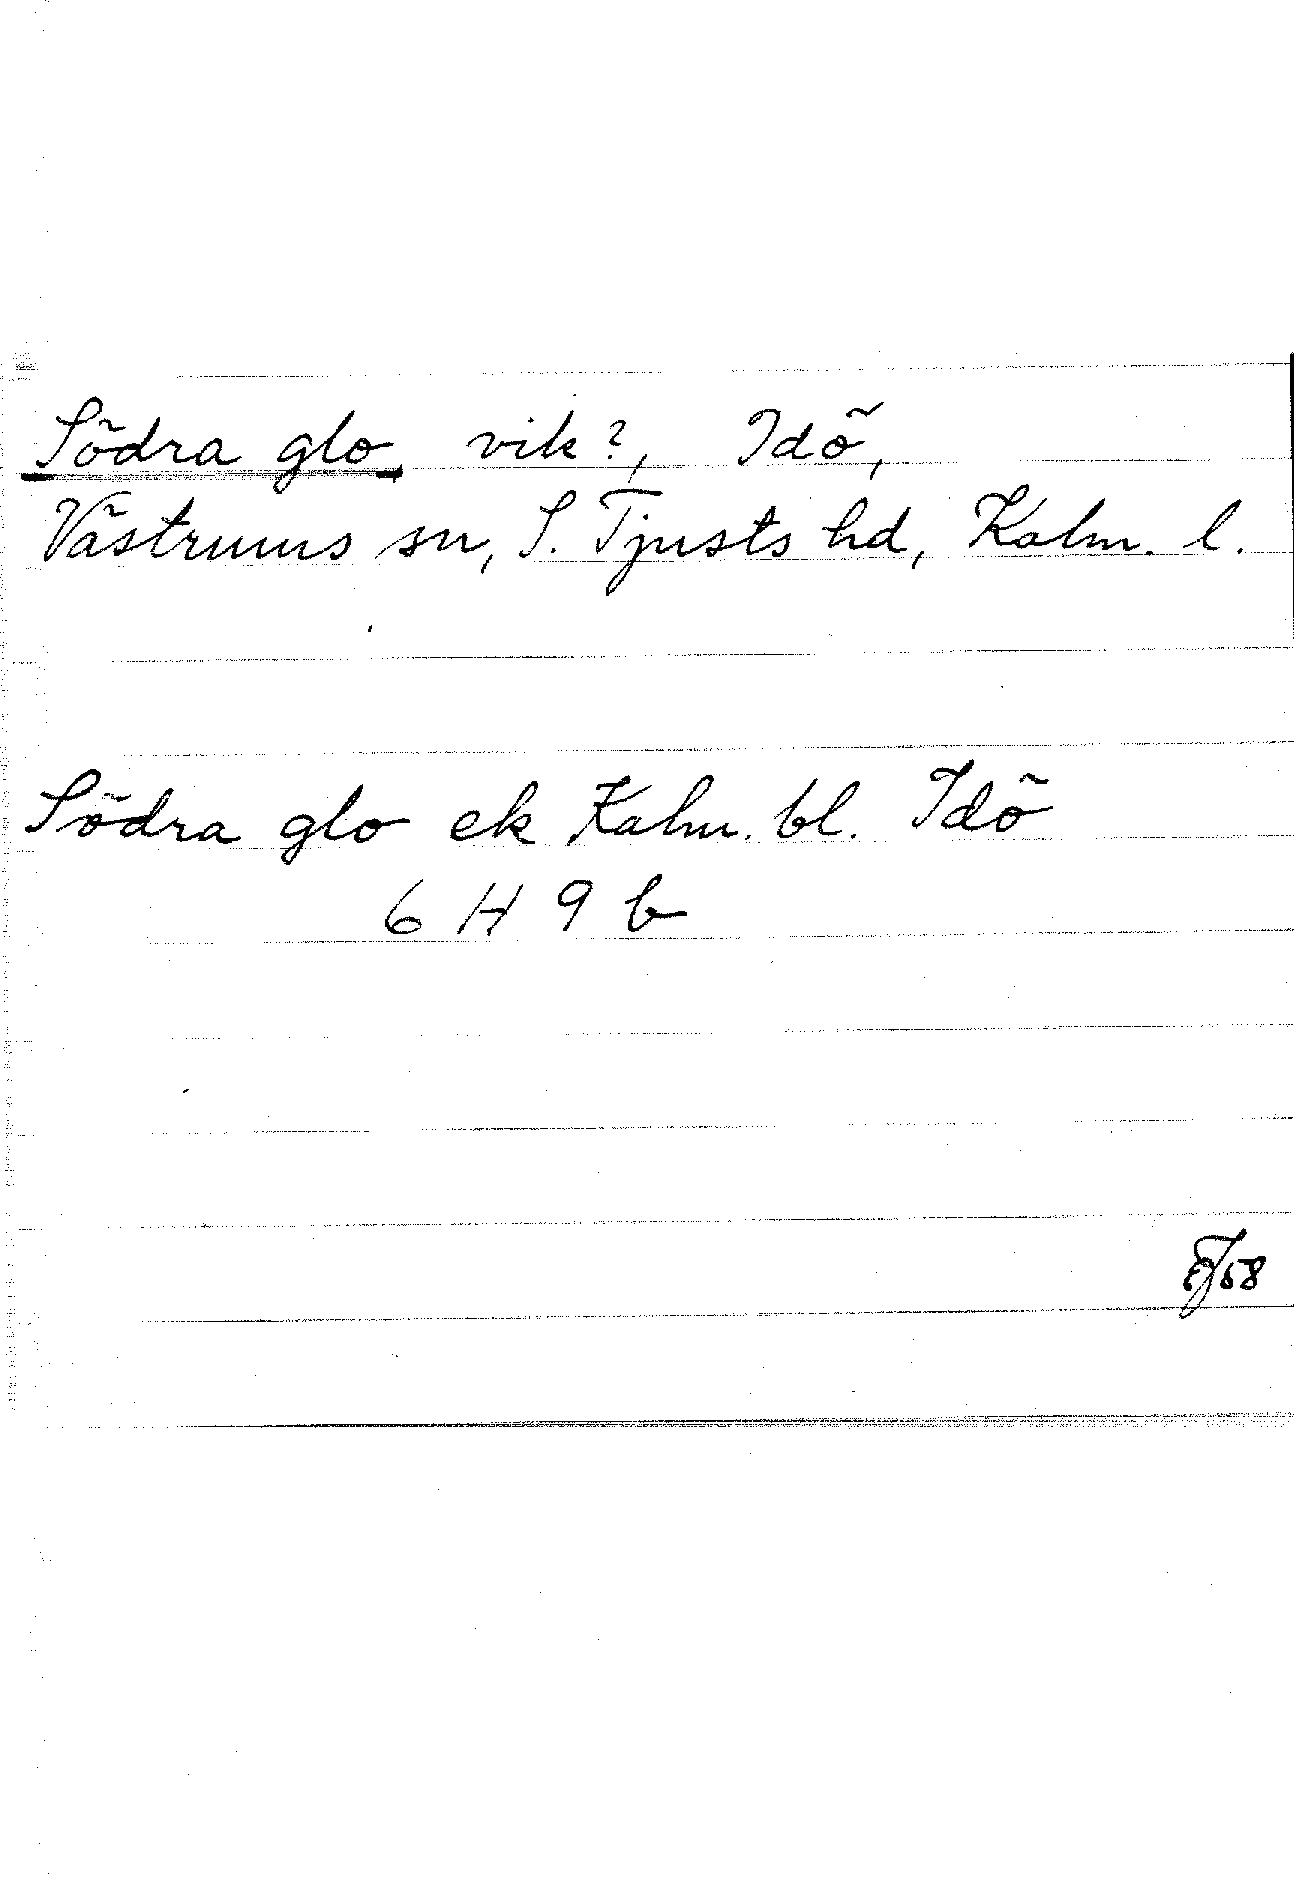 Södra glo, vik?, Idö,
Västrums sn, S. Tjusts hd, Kalm. l.
Södra glo ek Kalm. bl. Idö
6 H 9 b
58